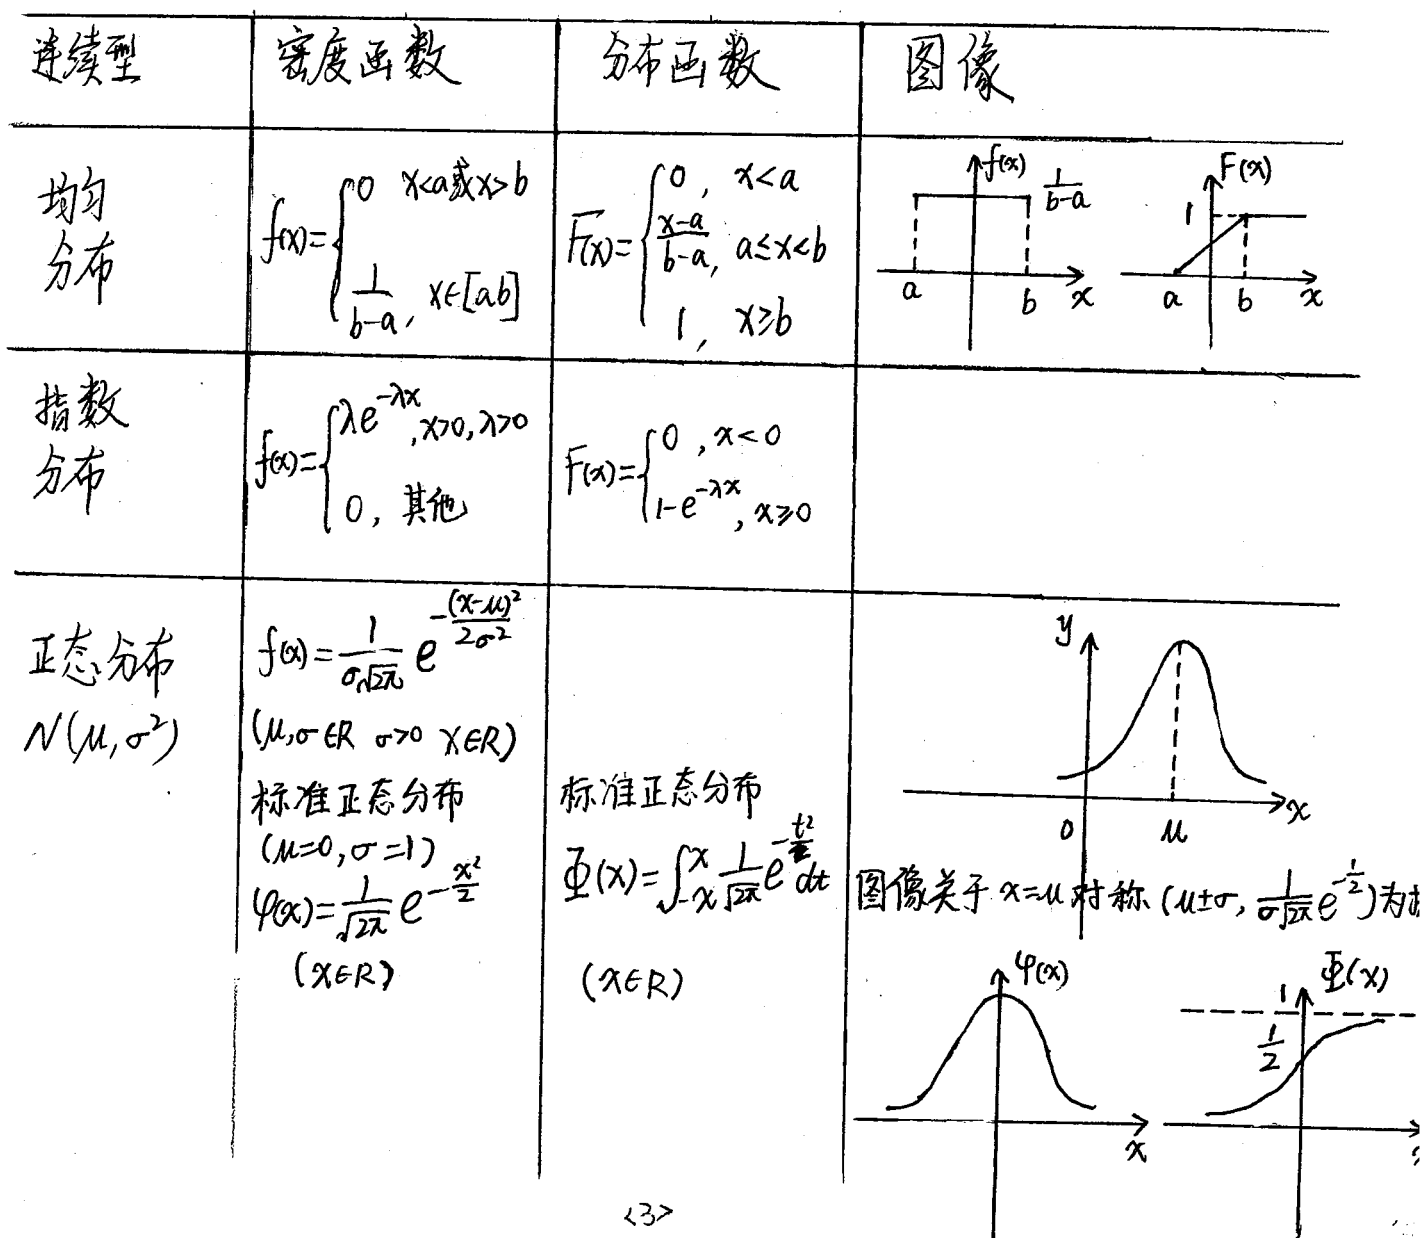 连续型 密度函数 分布函数 图像
均匀
分布
f(x)= { 0 x<a或x>b
1/(b-a), x∈[ab]
F(x)= { 0, x<a
(x-a)/(b-a), a≤x<b
1, x≥b
f(x) 1/(b-a) a b x
F(x) 1 a b x
指数
分布
f(x)= { λe^{-λx}, x>0, λ>0
0, 其他
F(x)= { 0, x<0
1-e^{-λx}, x≥0
正态分布
N(μ,σ²)
f(x)= 1/(σ√2π) e^{-(x-μ)²/2σ²}
(μ,σ∈R σ>0 X∈R)
标准正态分布
(μ=0,σ=1)
φ(x)= 1/√2π e^{-x²/2}
(x∈R)
标准正态分布
Φ(x)=∫_{-x}^{x} 1/√2π e^{-t²/2} dt
(x∈R)
y 0 μ x
图像关于x=μ对称 (μ±σ, 1/(σ√2π) e^{-1/2})为
φ(x) x
Φ(x) 1 1/2
<3>